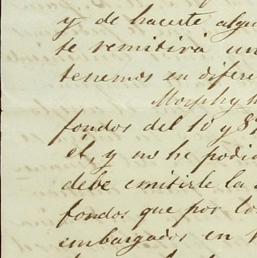 y de hacerte algu
te remitirá un
tenemos en difere
Morphy h
fondos del 10 y 8
él, y no he podi
debe emitirle la
fondos que por lo
embargados en